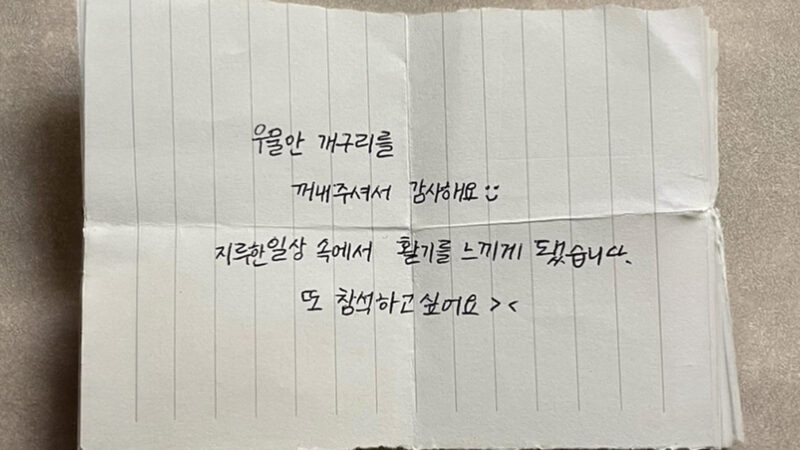 우물안 개구리를
꺼내주셔서 감사해요 :)
지루한일상 속에서 활기를 느끼게 됐습니다.
또 참석하고싶어요 > <